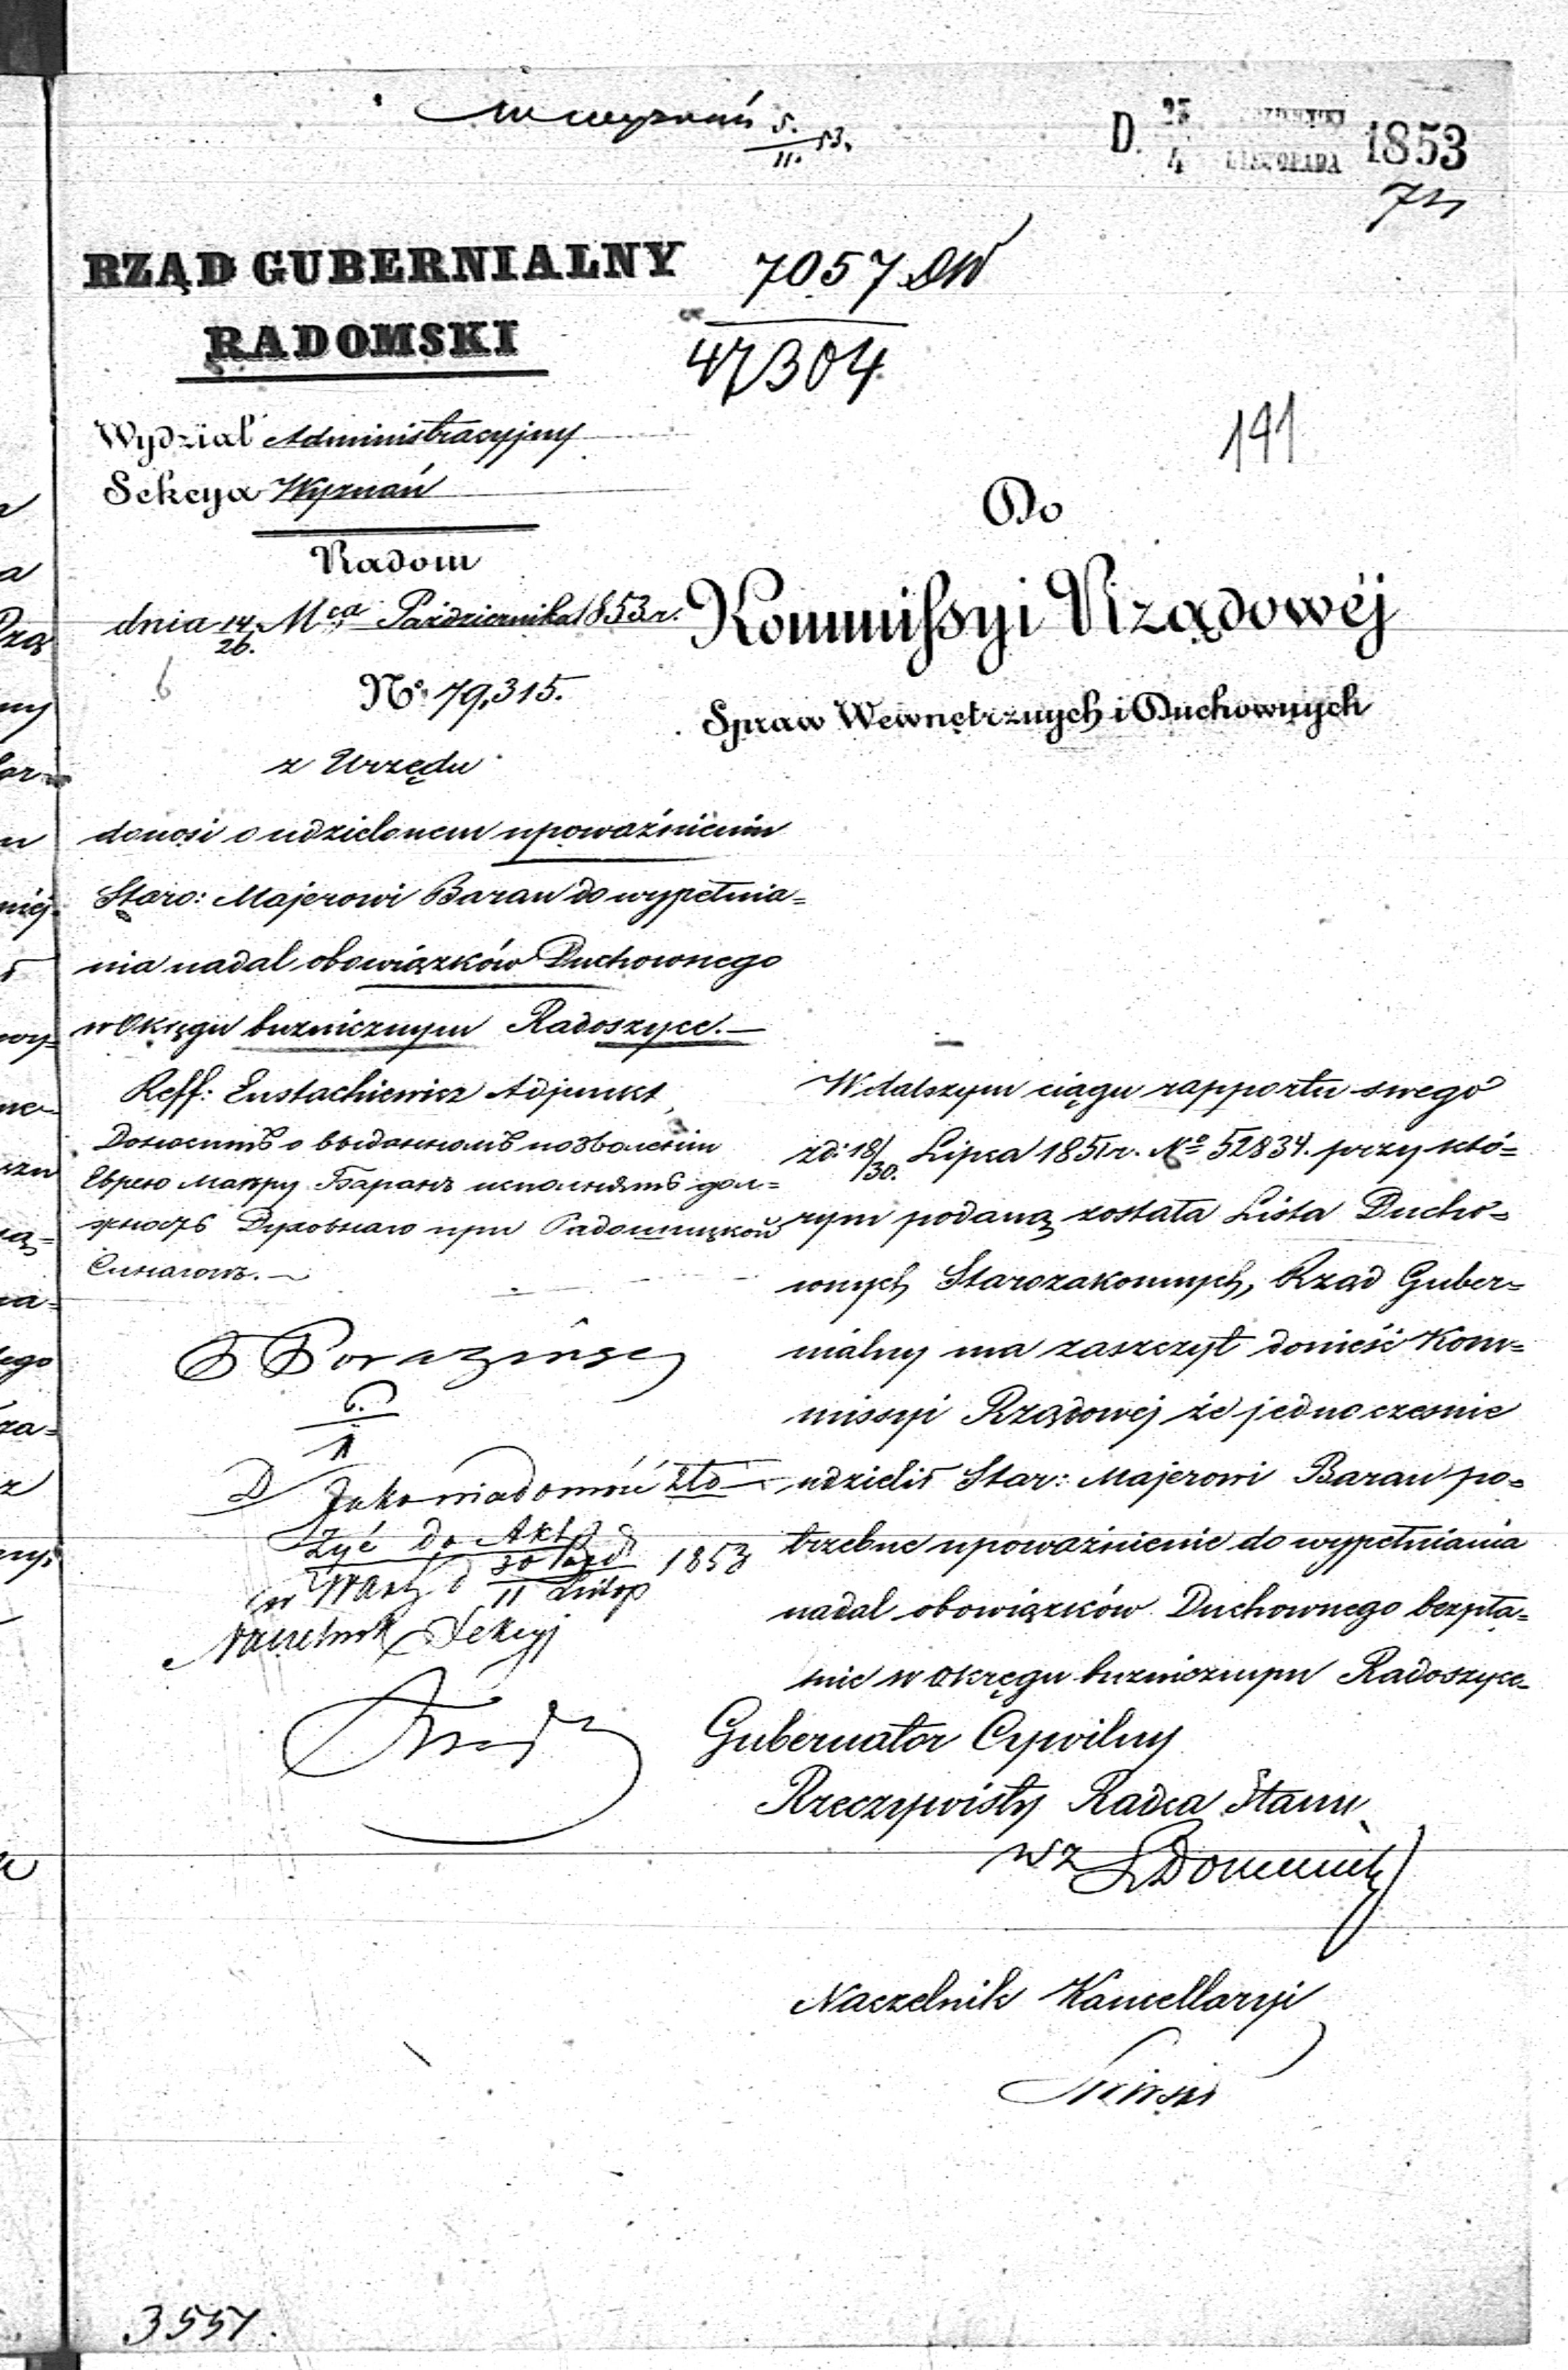 5.
11. 53.
D. 23 PAZDZIERNIKA
4 LISTOPADA 1853
RZĄD GUBERNIALNY
RADOMSKI
7057 DW
47304
141
Wydział Administracyjny
Sekcya Wyznań
Radom
dnia 14/26. Mca Październiku 1853 r.
No. 79,315.
z Urzędu
Do
Kommissyi Rządowéj
Spraw Wewnętrznych i Duchownych
donosi o udzielonem upoważnieniu
Staro: Majerowi Baran do wypełnia=
nia nadal obowiązków Duchownego
w Okręgu bużnicznym Radoszyce.—
Reff: Eustachiewicz Adjunkt
Доноситъ о выданномъ позволенiи
Еврею Маіеру Баранъ исполнять дол=
жность Духовнаго при Радошицкой
Синагогѣ.—
6.
11
Jako wiadomość zło=
żyć do Akt
w Warsz d 30 Paźd 1853
11 Listop
Naczelnik Sekcyi
W dalszym ciągu rapportu swego
z d: 18/30. Lipca 1851 r. No 52834. przy któ=
rym podaną została Lista Ducho=
wnych Starozakonnych, Rząd Guber=
nialny ma zaszczyt donieść Kom=
missyi Rządowej że jednocześnie
udzielił Star: Majerowi Baran po=
trzebne upoważnienie do wypełniania
nadal obowiązków Duchownego bezpła=
tnie w Okręgu bużnicznym Radoszyce
Gubernator Cywilny
Rzeczywisty Radca Stanu
wz
Naczelnik Kancellaryi
3551.